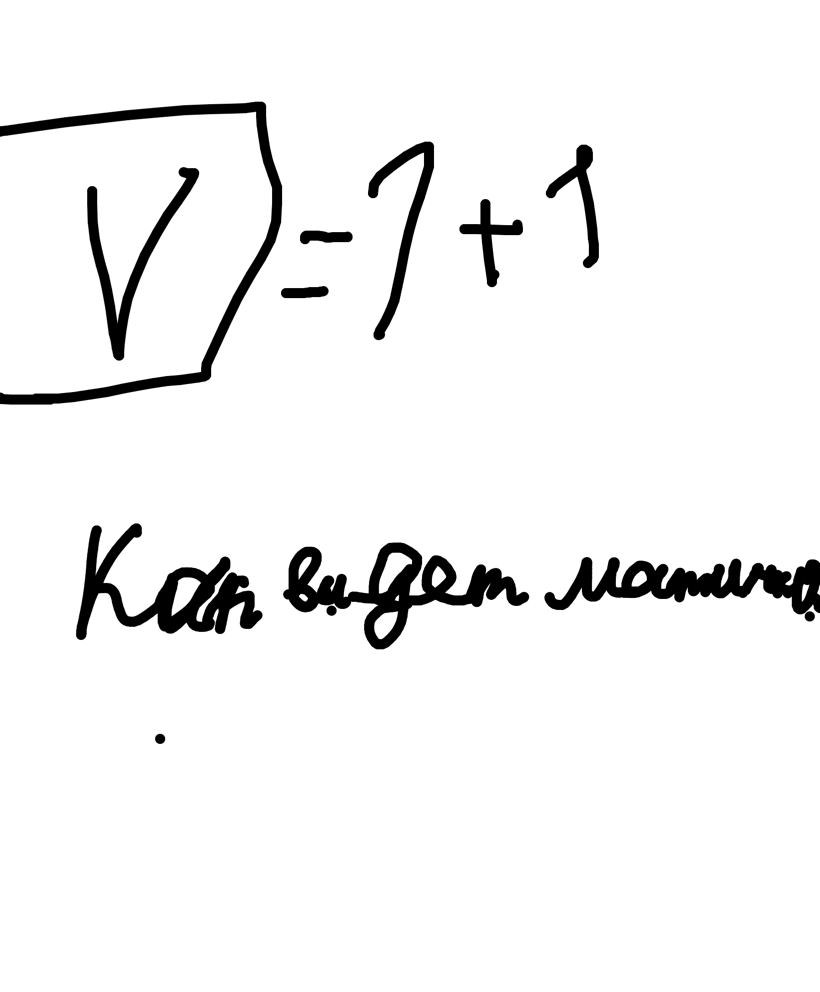 V = 1 + 1
Как видет машина